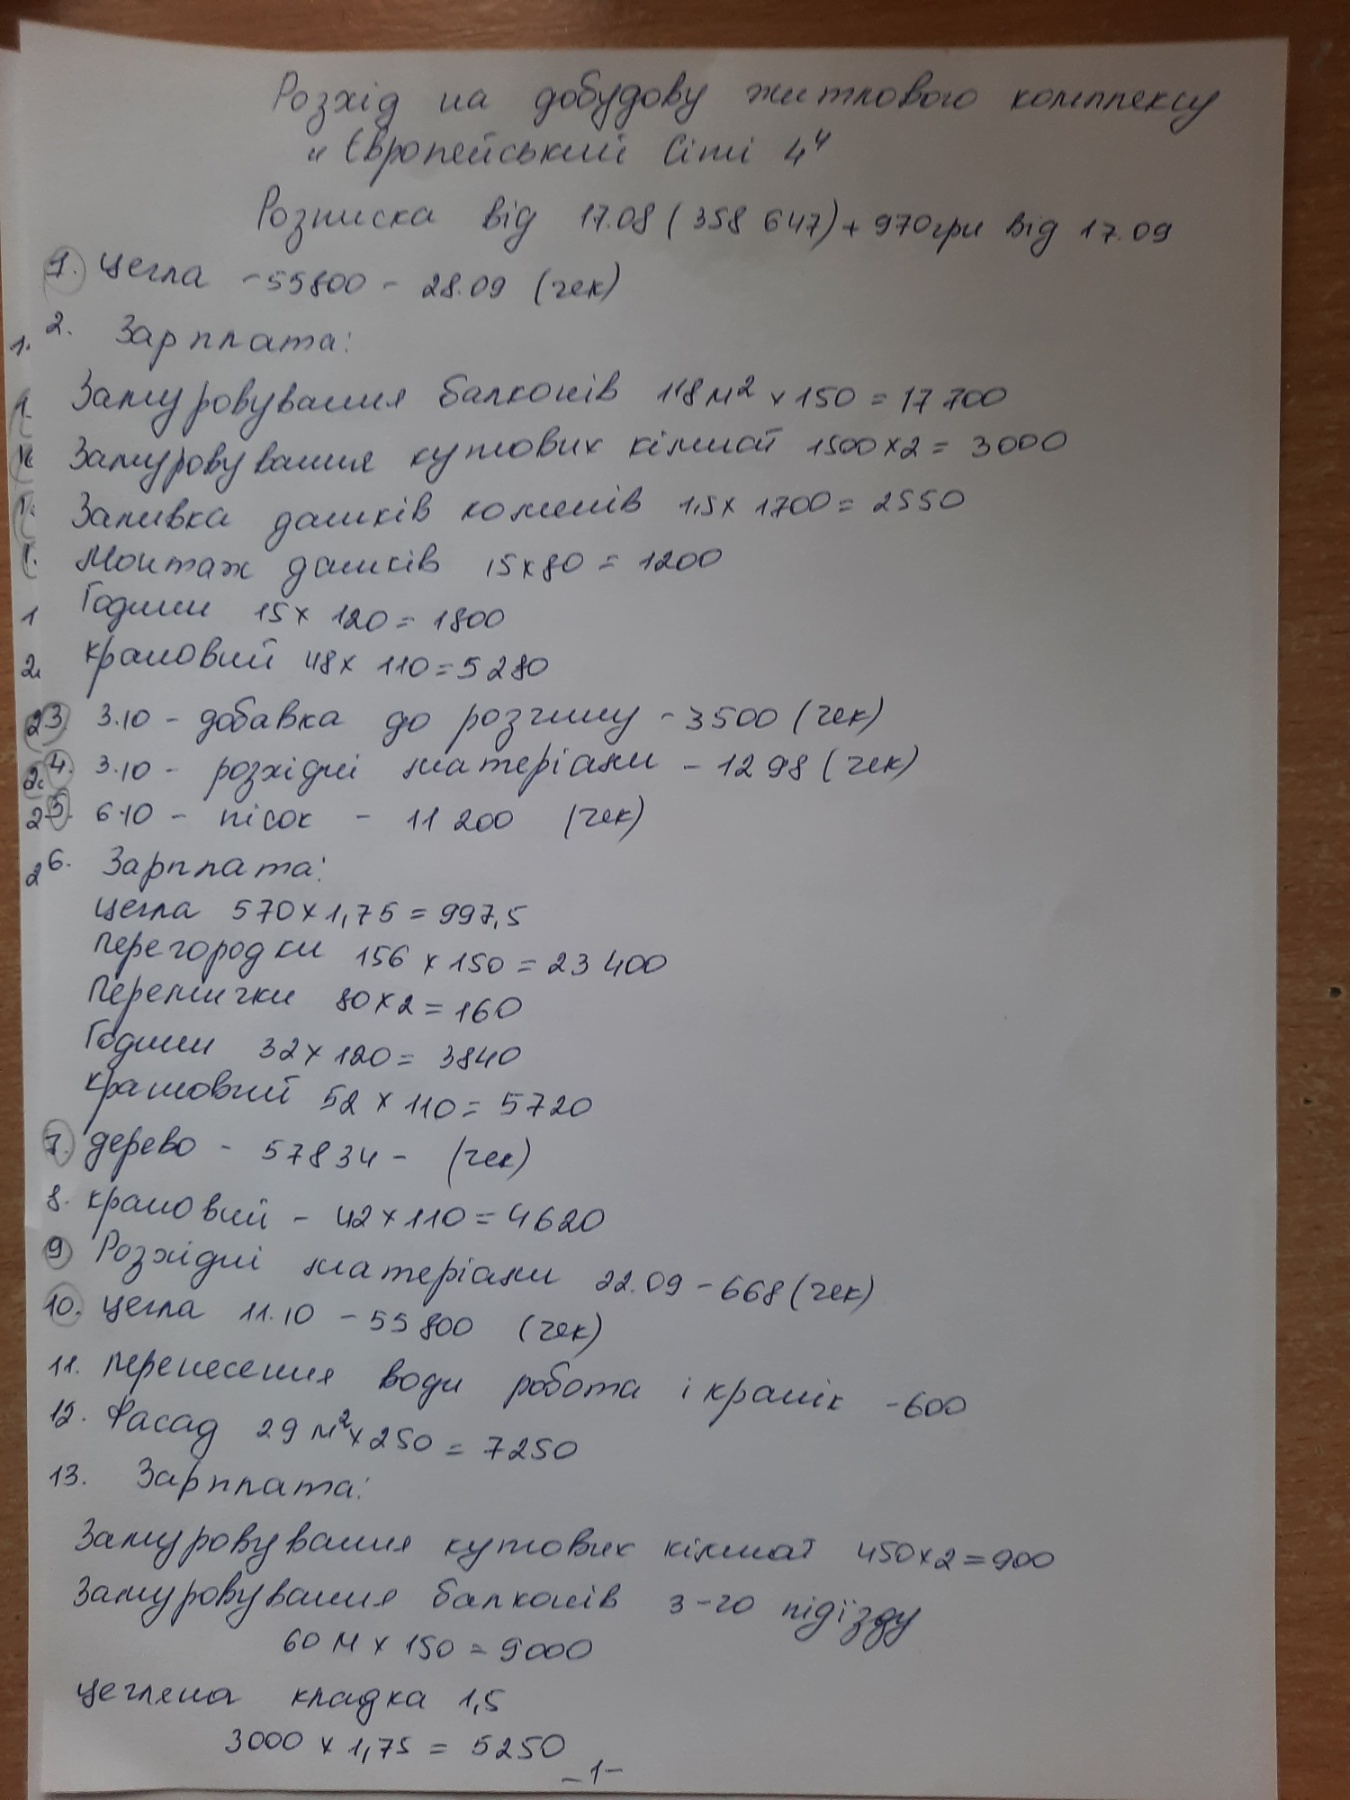 Розхід на добудову житлового комплексу
"Європейський Сіті 4"
Розписка від 17.08 (358 647) + 970грн від 17.09
1. цегла - 55800 - 28.09 (чек)
1. 2. Зарплата:
Замуровування балконів 118 м² x 150 = 17 700
Замуровування кутових кімнат 1500 x 2 = 3000
Заливка дашків коменів 1,5 x 1700 = 2550
Монтаж дашків 15 x 80 = 1200
1 Години 15 x 120 = 1800
2. крановий 48 x 110 = 5 280
2 3 3.10 - добавка до розчину - 3500 (чек)
2. 4. 3.10 - розхідні матеріали - 1298 (чек)
2 5. 6.10 - пісок - 11 200 (чек)
2 6. Зарплата:
цегла 570 x 1,75 = 997,5
перегородки 156 x 150 = 23 400
перемички 80 x 2 = 160
Години 32 x 120 = 3840
крановий 52 x 110 = 5720
7. дерево - 57834 - (чек)
8. крановий - 42 x 110 = 4620
9 Розхідні матеріали 22.09 - 668 (чек)
10. цегла 11.10 - 55 800 (чек)
11. перенесення води робота і кранік - 600
12. Фасад 29 м² x 250 = 7250
13. Зарплата:
Замуровування кутових кімнат 450 x 2 = 900
Замуровування балконів 3-го підїзду
60 м x 150 = 9000
цегляна кладка 1,5
3000 x 1,75 = 5250
- 1 -